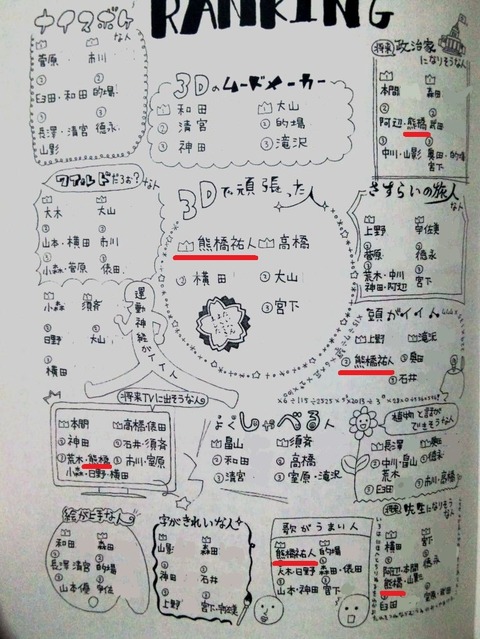 RANKING
ナイスボディな人
菅原 市川
②
臼田・和田 的場
③
長澤・清宮 徳永
山影
3Dのムードメーカー
和田 大山
②清宮 ②的場
③神田 ③滝沢
将来政治家
になりそうな人
本間 森田
②
阿辺・熊橋
③
中川・山影 奥田・的場
宮下
ワイルドだろぉ?な人
大木 大山
②
山本・横田 市川
③
小森・菅原 俵田
3Dで頑張った人
熊橋祐人 高橋
②横田 ②大山
③宮下
さすらいの旅人
な人
上野 宇佐美
②
菅原 徳永
③
荒木・中川
神田・阿辺
運動神経がイイ人
小森 須斉
②
日野 大山
③
横田
頭がイイ人
上野 滝沢
②熊橋祐人 ②奥田
③石井
将来TVに出そうな人
本間 高橋・俵田
②神田 ②石井・須斉
③荒木・熊橋 ③市川・室原
小森・日野・横田
よくしゃべる人
畠山 須斉
②和田 ②高橋
③清宮 ③室原・滝沢
植物と話が
できそうな人
長澤
②中川・畠山 ②徳永
荒木
③臼田 ③市川・高橋
絵が上手な人
和田 森田
②
長澤 清宮 的場
③
山本・優 宇佐
字がきれいな人
山影 森田
②
神田 石井
③
上野 宮下・宇佐美
歌がうまい人
熊橋祐人 的場
②
大木・日野 森田・俵田
③
山本・神田 宮下
将来先生になりそう
な人
横田 宮下
②
阿辺・本間 徳永
熊橋・山影
③
臼田